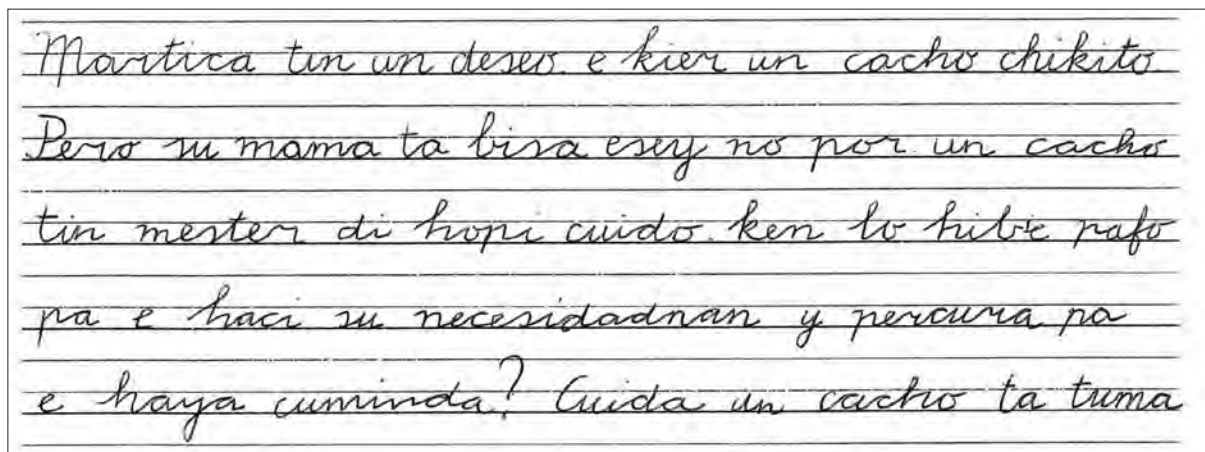 Martica tin un deseo. e kier un cacho chikito.
Pero su mama ta bisa esey no por. un cacho
tin mester di hopi cuido. ken lo hib'e pafo
pa e haci su necesidadnan y percura pa
e haya cuminda? Cuida un cacho ta tuma